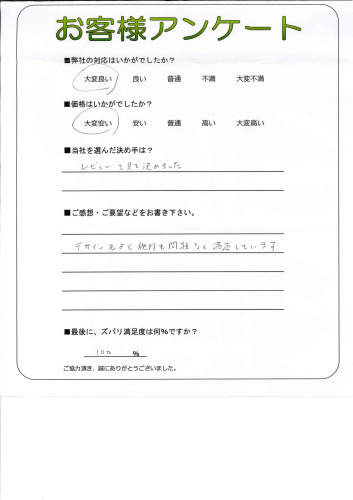 お客様アンケート
■弊社の対応はいかがでしたか?
大変良い 良い 普通 不満 大変不満
■価格はいかがでしたか?
大変安い 安い 普通 高い 大変高い
■当社を選んだ決め手は?
レビューを見て決めました
■ご感想・ご要望などをお書き下さい。
デザインもよく 絶対も問題なく 満足しています
■最後に、ズバリ満足度は何%ですか?
100 %
ご協力頂き、誠にありがとうございました。